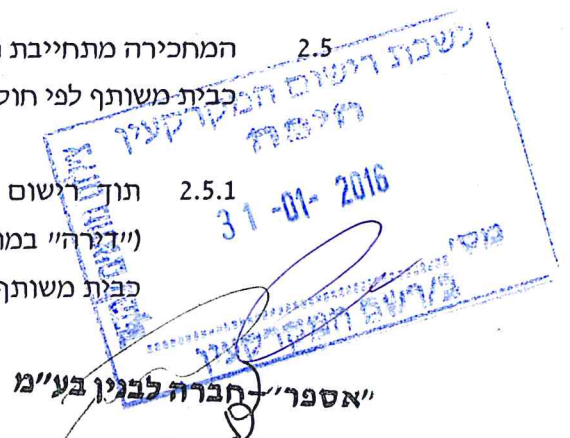 2.5 המחכירה מתחייבת
כבית משותף לפי חוק
2.5.1 תוך רישום
("דירה"
כבית משותף
לשכת רישום המקרקעין
חיפה
31 -01- 2016
מס'
ב/רשם המקרקעין
"אספר" - חברה לבנין בע"מ